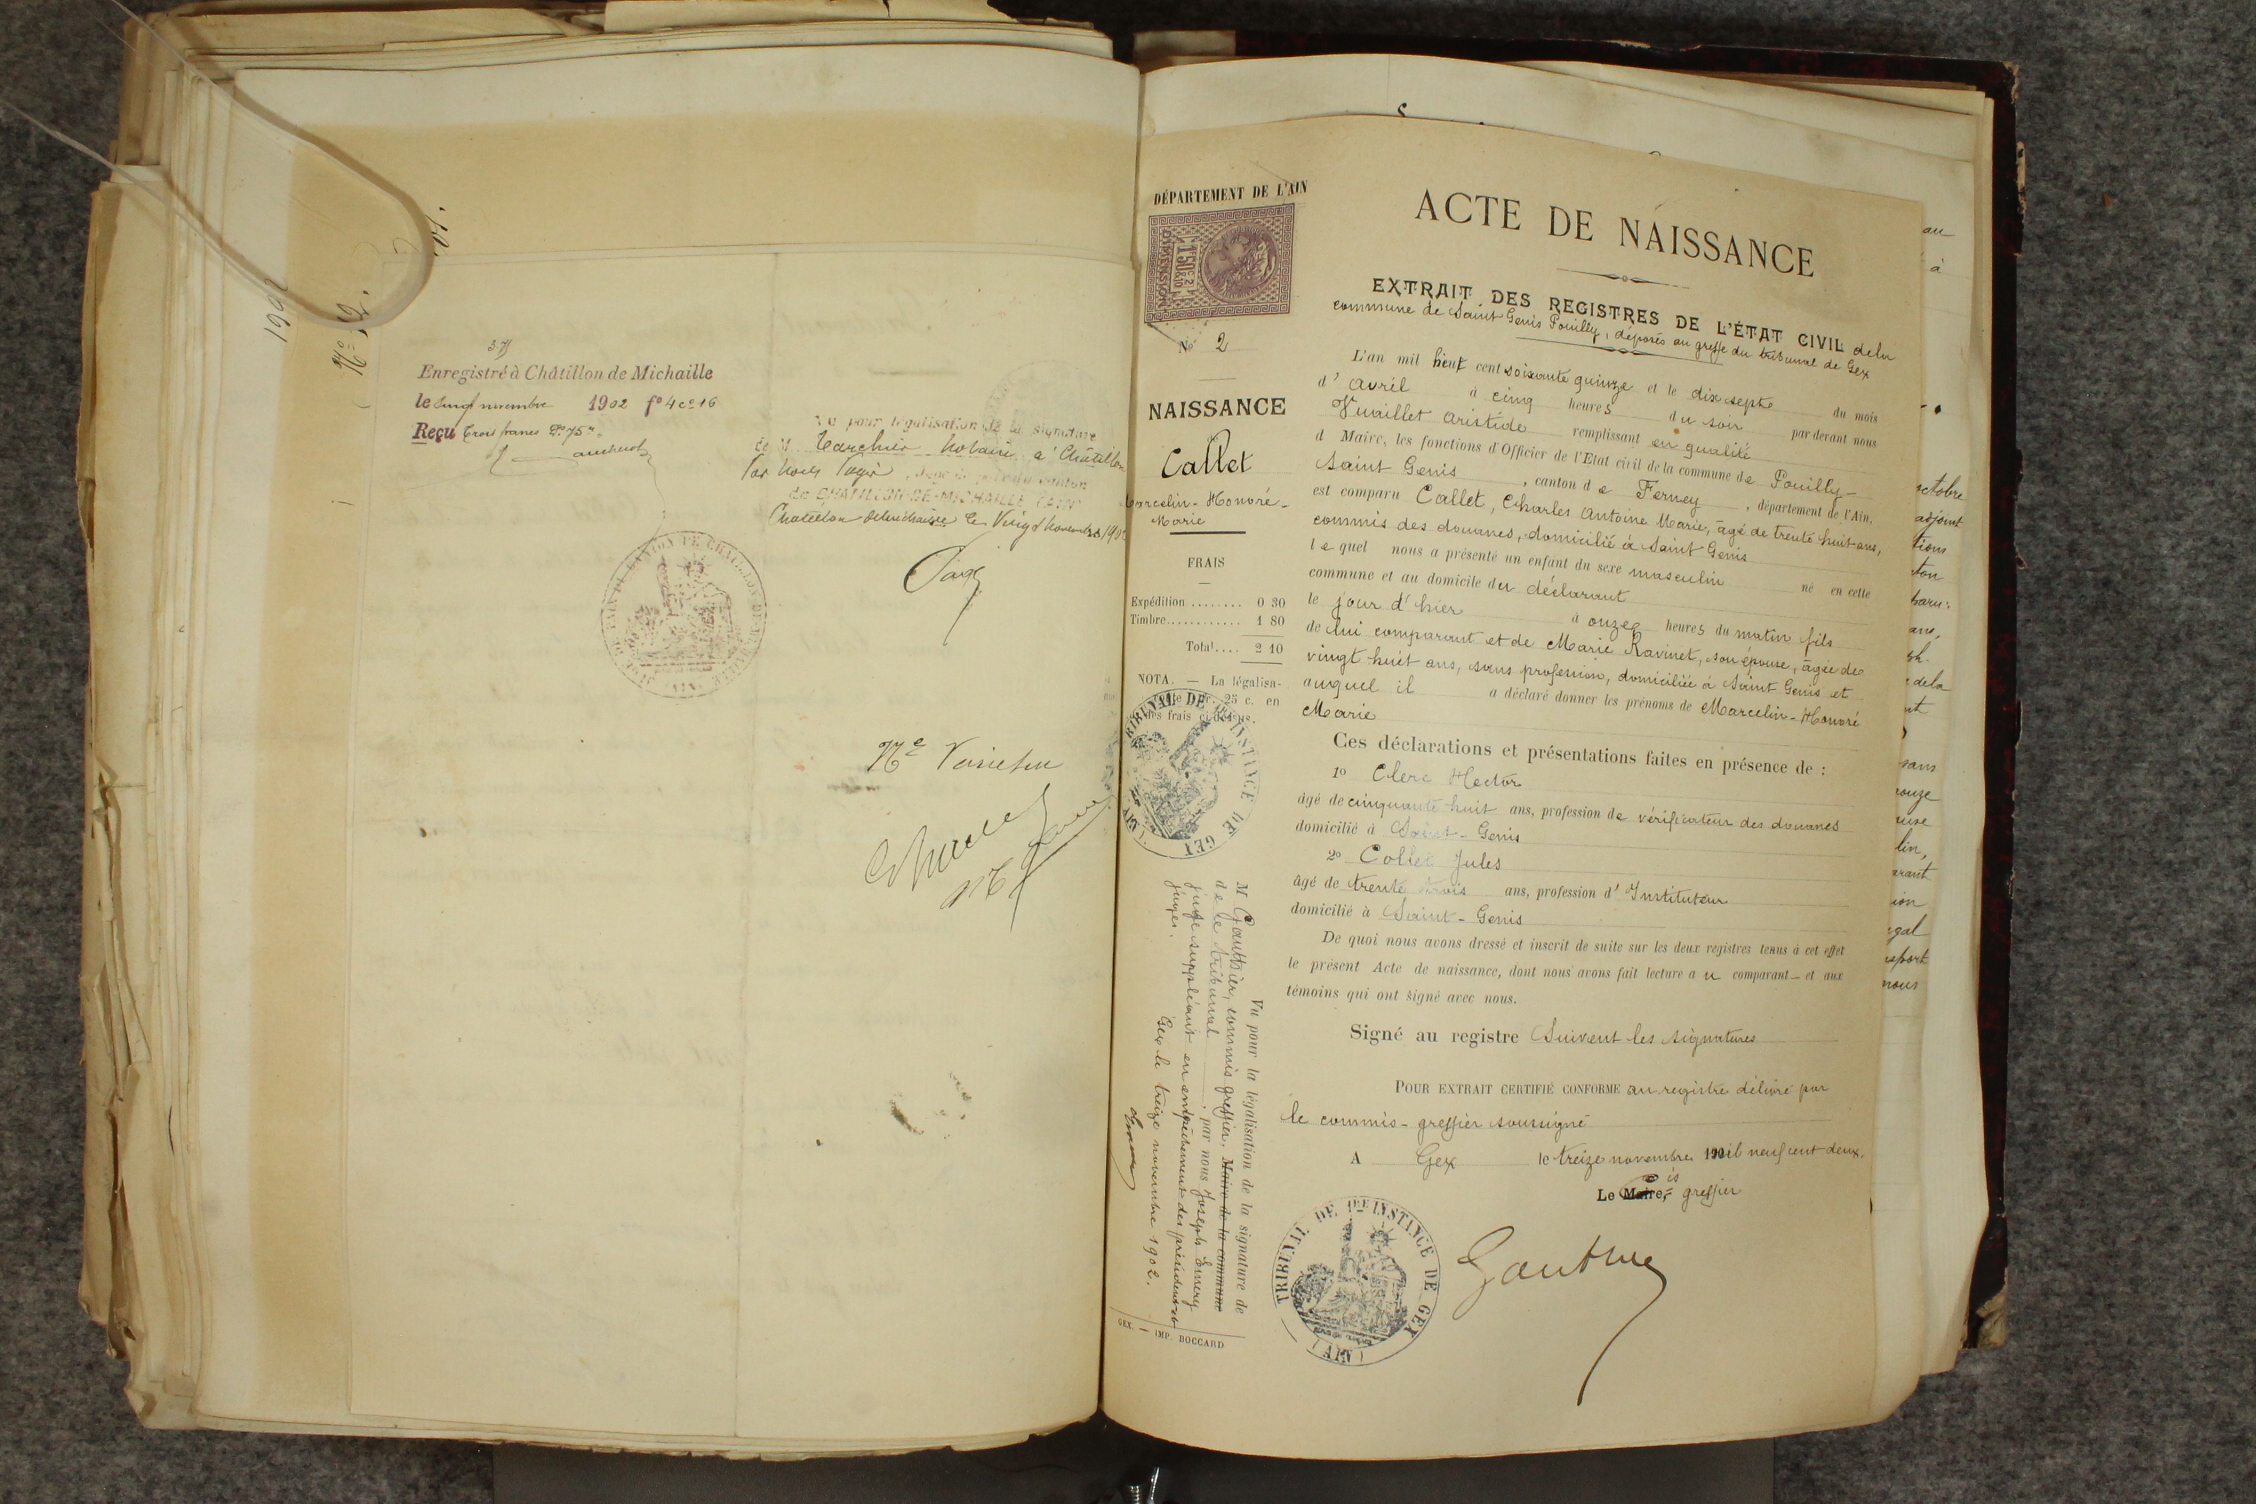 1902
No 12.
01.
37
Enregistré à Châtillon de Michaille
le vingt novembre 1902 fo 4 co 16
Reçu trois francs 75
Vu pour légalisation de la signature
de M Tarchier notaire à Châtillon
Par nous juge de paix du canton
de CHATILLON-DE-MICHAILLE (AIN)
Châtillon de Michaille le Vingt novembre 1902
Page
JUSTICE DE PAIX DU CANTON DE CHATILLON-DE-MICHAILLE
(AIN)
DÉPARTEMENT DE L'AIN
1F50c
2/10
DIMENSION
No 2
NAISSANCE
de
Callet
Marcelin-Honoré-
Marie
FRAIS
Expédition ........ 0 30
Timbre............ 1 80
Total.... 2 10
NOTA. — La légalisa-
25 c. en
des frais ci-dessus.
TRIBUNAL DE 1RE INSTANCE DE GEX
(AIN)
Vu pour la légalisation de la signature de
M Gauthier, commis greffier. Maire de la commune
de ce tribunal, par nous Joseph Emery
juge suppléant en empêchement des président et
juges.
Gex le treize novembre 1902.
Emery
GEX. — IMP. BOCCARD
ACTE DE NAISSANCE
EXTRAIT DES REGISTRES DE L'ÉTAT CIVIL de la
commune de Saint Genis Pouilly, déposés au greffe du tribunal de Gex
L'an mil huit cent soixante quinze et le dix sept du mois
d'avril à cinq heures du soir par devant nous
Vuaillet Aristide remplissant en qualité
d Maire, les fonctions d'Officier de l'Etat civil de la commune de Pouilly-
Saint Genis, canton de Ferney, département de l'Ain,
est comparu Callet, Charles Antoine Marie, âgé de trente huit ans,
commis des douanes, domicilié à Saint Genis
lequel nous a présenté un enfant du sexe masculin né en cette
commune et au domicile du déclarant
le jour d'hier à onze heures du matin fils
de lui comparant et de Marie Ravinet, son épouse, âgée de
vingt huit ans, sans profession, domiciliée à Saint Genis et
auquel il a déclaré donner les prénoms de Marcelin-Honoré
Marie
Ces déclarations et présentations faites en présence de :
1o Clerc Hector
âgé de cinquante huit ans, profession de vérificateur des douanes
domicilié à Saint-Genis
2o Collet Jules
âgé de trente trois ans, profession d'Instituteur
domicilié à Saint-Genis
De quoi nous avons dressé et inscrit de suite sur les deux registres tenus à cet effet
le présent Acte de naissance, dont nous avons fait lecture au comparant et aux
témoins qui ont signé avec nous.
Signé au registre Suivent les signatures
POUR EXTRAIT CERTIFIÉ CONFORME au registre délivré par
le commis-greffier soussigné
A Gex le treize novembre 190 mil neuf cent deux.
Le Maire, greffier
Gauthier
TRIBUNAL DE 1RE INSTANCE DE GEX
(AIN)
au
à
octobre
adjoint
tions
ton
ans,
de la
sans
lin,
nous